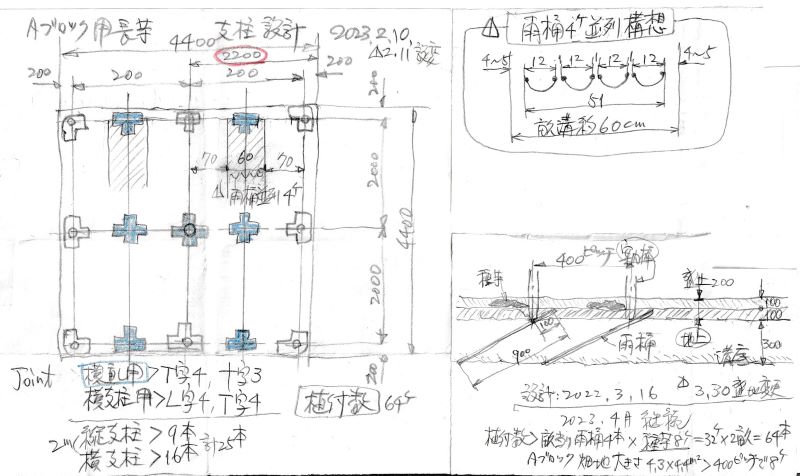 Aブロック用長芋 支柱設計
2023.2.10
△2.11設変
4400
2200
200 200 200 200
200
70 60 70
雨桶並列4ケ
2000
4400
2000
200
Joint
横直し用>T字4,十字3
横支柱用>L字4,T字4
植付数 64ケ
2m
縦支柱>9本
横支柱>16本
計25本
△ 雨桶4ケ並列構想
4~5 12 12 12 12 4~5
51
畝溝約60cm
400
種芋
盛土200
100
100
300
地上
溝底
100
900
雨桶
設計:2022.3.16 △3.30
2023.4月継続
植付数>畝割り雨桶4本×8ケ=32ケ×2畝=64本
Aブロック畑地大きさ4.3×4.4m>400